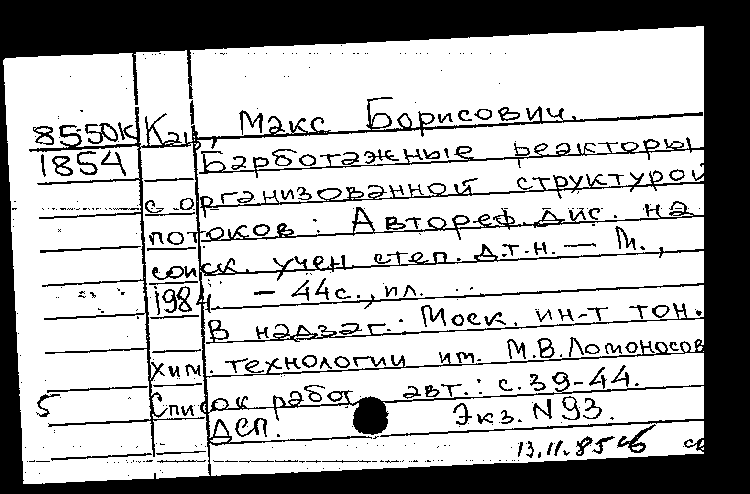 8550к Кац, Макс Борисович.
1854 Барботажные реакторы
с организованной структурой
потоков : Автореф. дис. на
соиск. учен. степ. д.т.н. — М.,
1984. - 44с., ил.
В надзаг.: Моск. ин-т тон.
хим. технологии им. М.В.Ломоносов
5 Список работ авт.: с.39-44.
ДСП. Экз. N93.
13.11.85